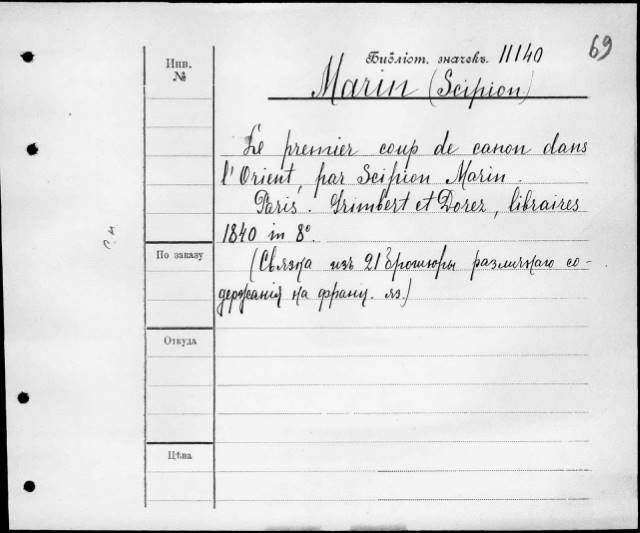 69
Библіот. значекъ. 11140
Инв.
№
Marin (Scipion)
Le premier coup de canon dans
l'Orient, par Scipion Marin.
Paris. Grimbert et Dorez, libraires
1840 in 8º.
По заказу
(Связка изъ 21 брошюры различнаго со-
держанія на франц. яз.)
Откуда
Цѣна